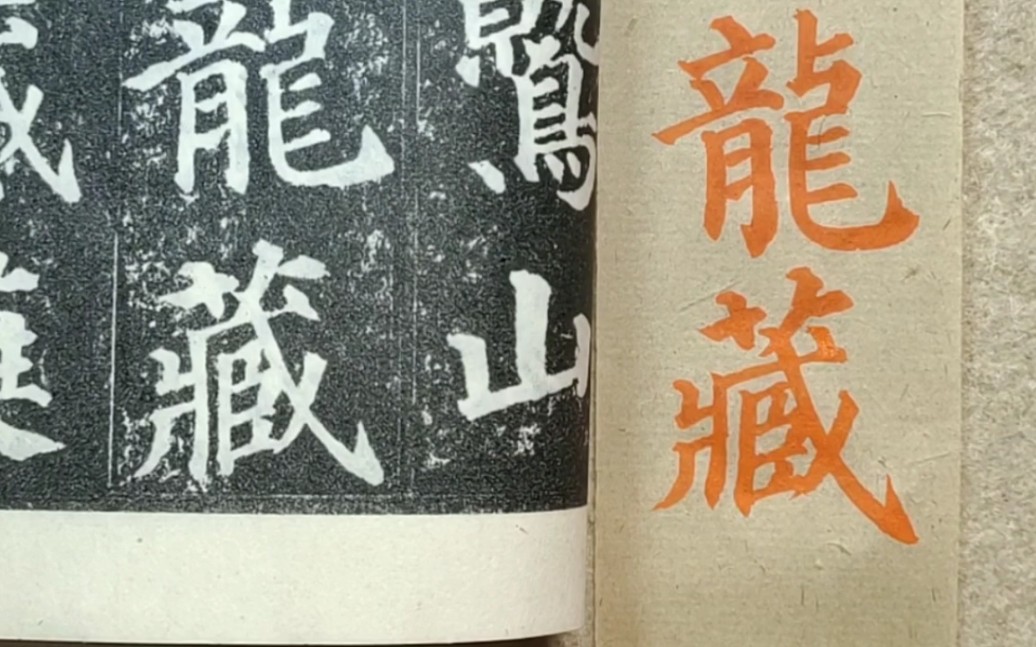 龍藏
鷲山
龍藏